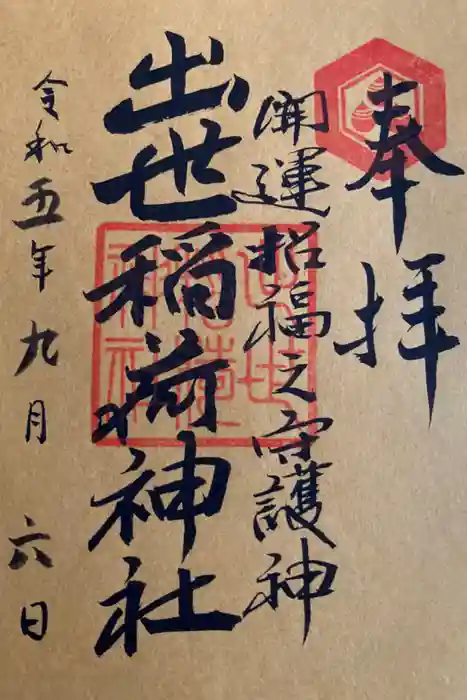 奉拝
開運招福之守護神
出世稲荷神社
令和五年九月六日